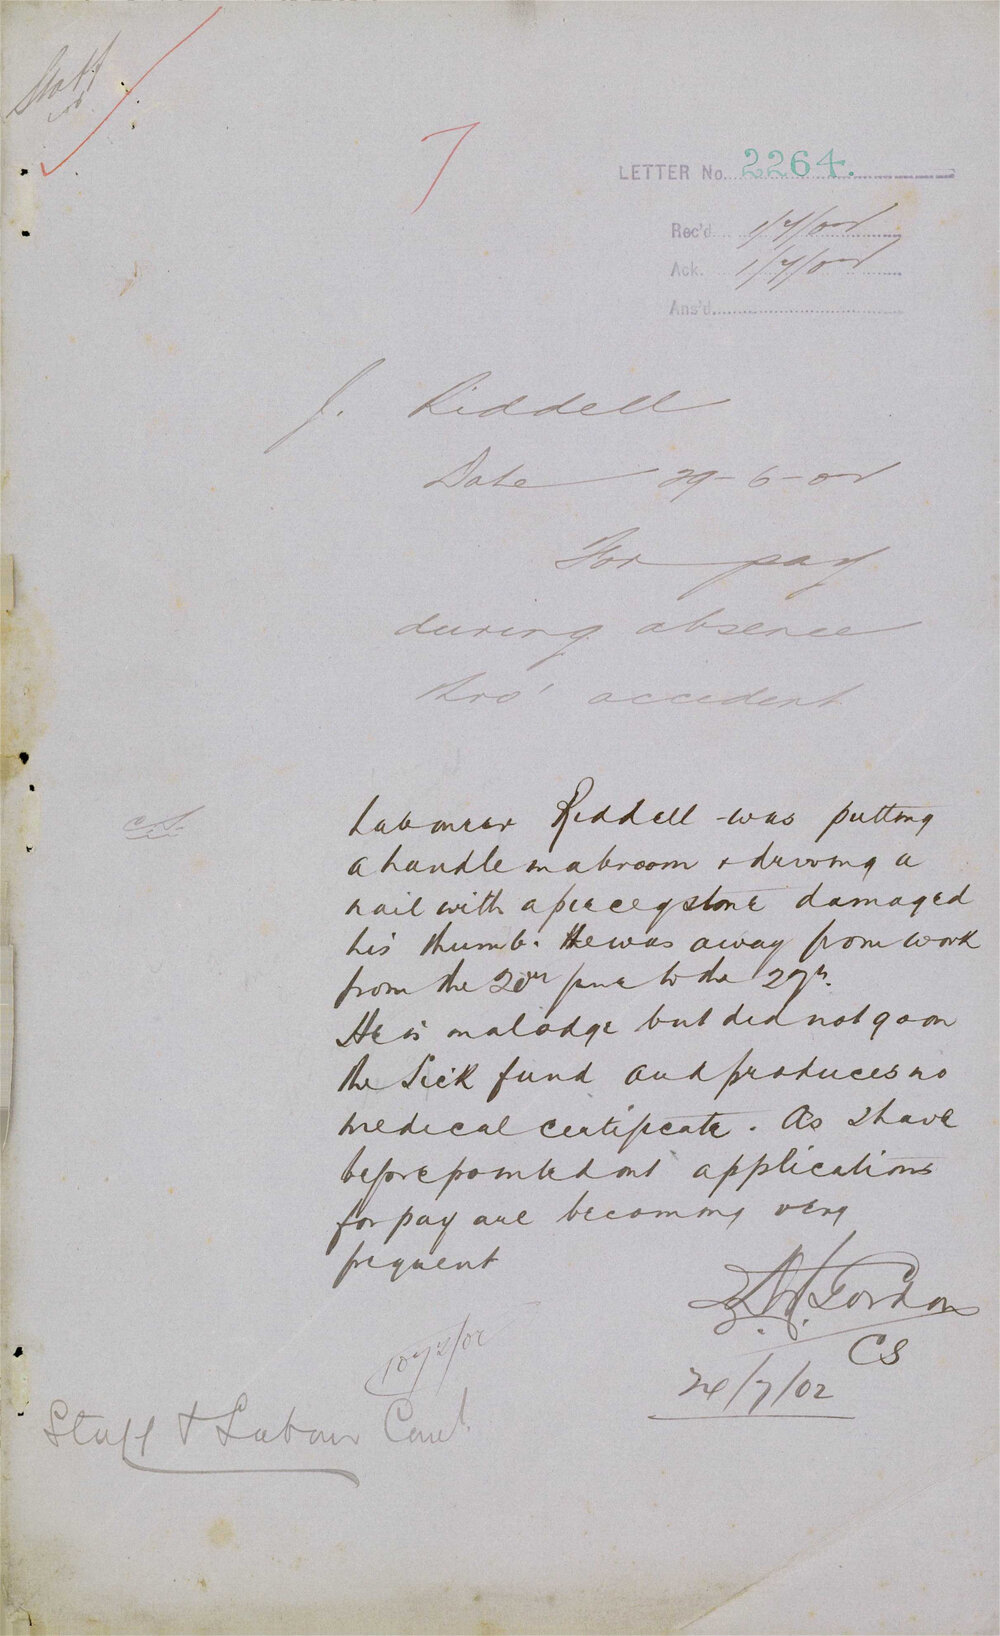 Staff
LETTER No. 2264.
Rec'd 1/7/02
Ack. 1/7/02
Ans'd.
J. Riddell
Date 29-6-02
For pay
during absence
thro' accident
C.S.
Labourer Riddell was putting
a handle in a broom & driving a
nail with a piece of stone damaged
his thumb. He was away from work
from the 20th June to the 27th.
He is in a lodge but did not go on
the Sick fund and produces no
medical certificate. As I have
before pointed out applications
for pay are becoming very
frequent
Gordon
CS
24/7/02
Staff & Labour Com!